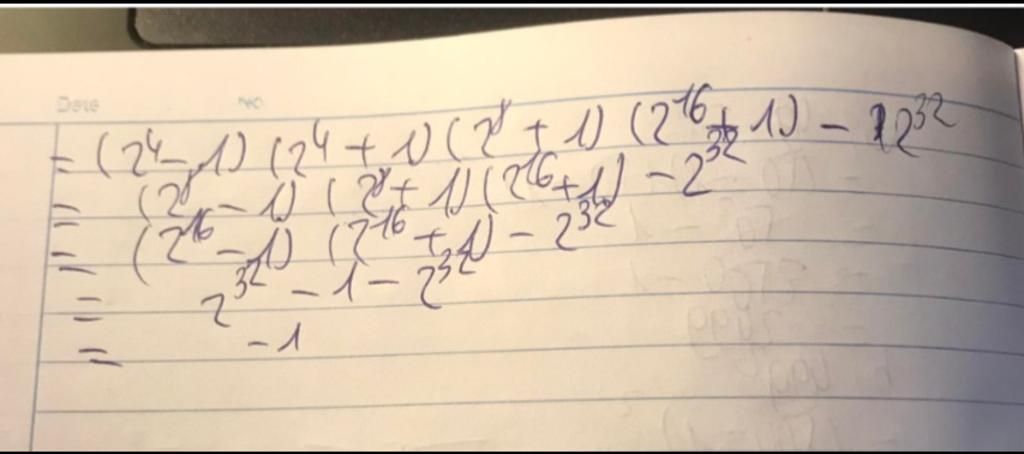 Date No
= (2⁴ - 1) (2⁴ + 1) (2⁸ + 1) (2¹⁶ + 1) - 2³²
= (2⁸ - 1) (2⁸ + 1) (2¹⁶ + 1) - 2³²
= (2¹⁶ - 1) (2¹⁶ + 1) - 2³²
= 2³² - 1 - 2³²
= - 1